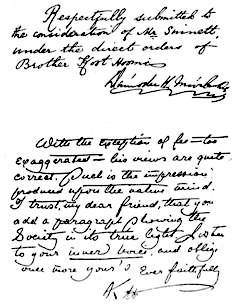 Respectfully submitted to
the consideration of Mr. Sinnett,
under the direct orders of
Brother Koot Hoomi
Damodar K. Mavalankar
With the exception of fee—too
exaggerated—his views are quite
correct. Such is the impression
produced upon the native mind.
I trust, my dear friend, that you
add a paragraph showing the
Society in its true light. Listen
to your inner voice, and oblige
once more yours' Ever faithfully
K H